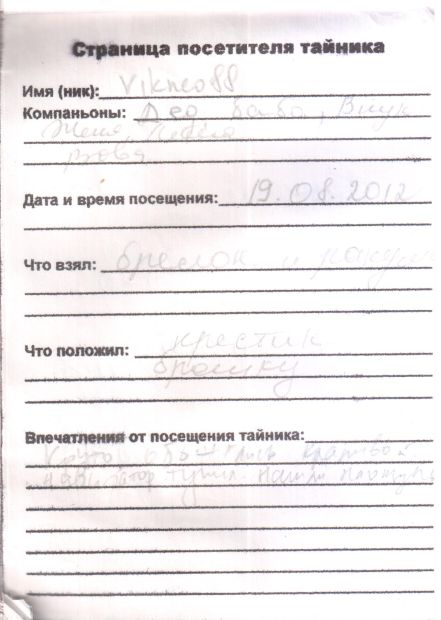 Страница посетителя тайника
Имя (ник): Vikneo88
Компаньоны: Дед, баба, Внук
Женя,
Вова
Дата и время посещения: 19.08.2012
Что взял: брелок и
Что положил: крестик
брошку
Впечатления от посещения тайника:
Круто
навигатор тупил. Нашли